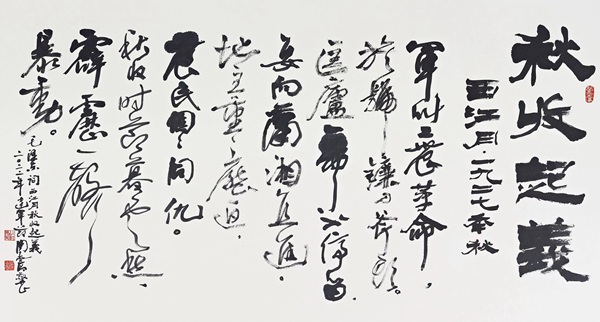 秋收起義
西江月·一九二七年秋
軍叫工農革命,
旗號鐮刀斧頭。
匡廬一帶不停留,
要向瀟湘直進。
地主重重壓迫,
農民個個同仇。
秋收時節暮雲愁,
霹靂一聲
暴動。
毛澤東詞西江月秋收起義